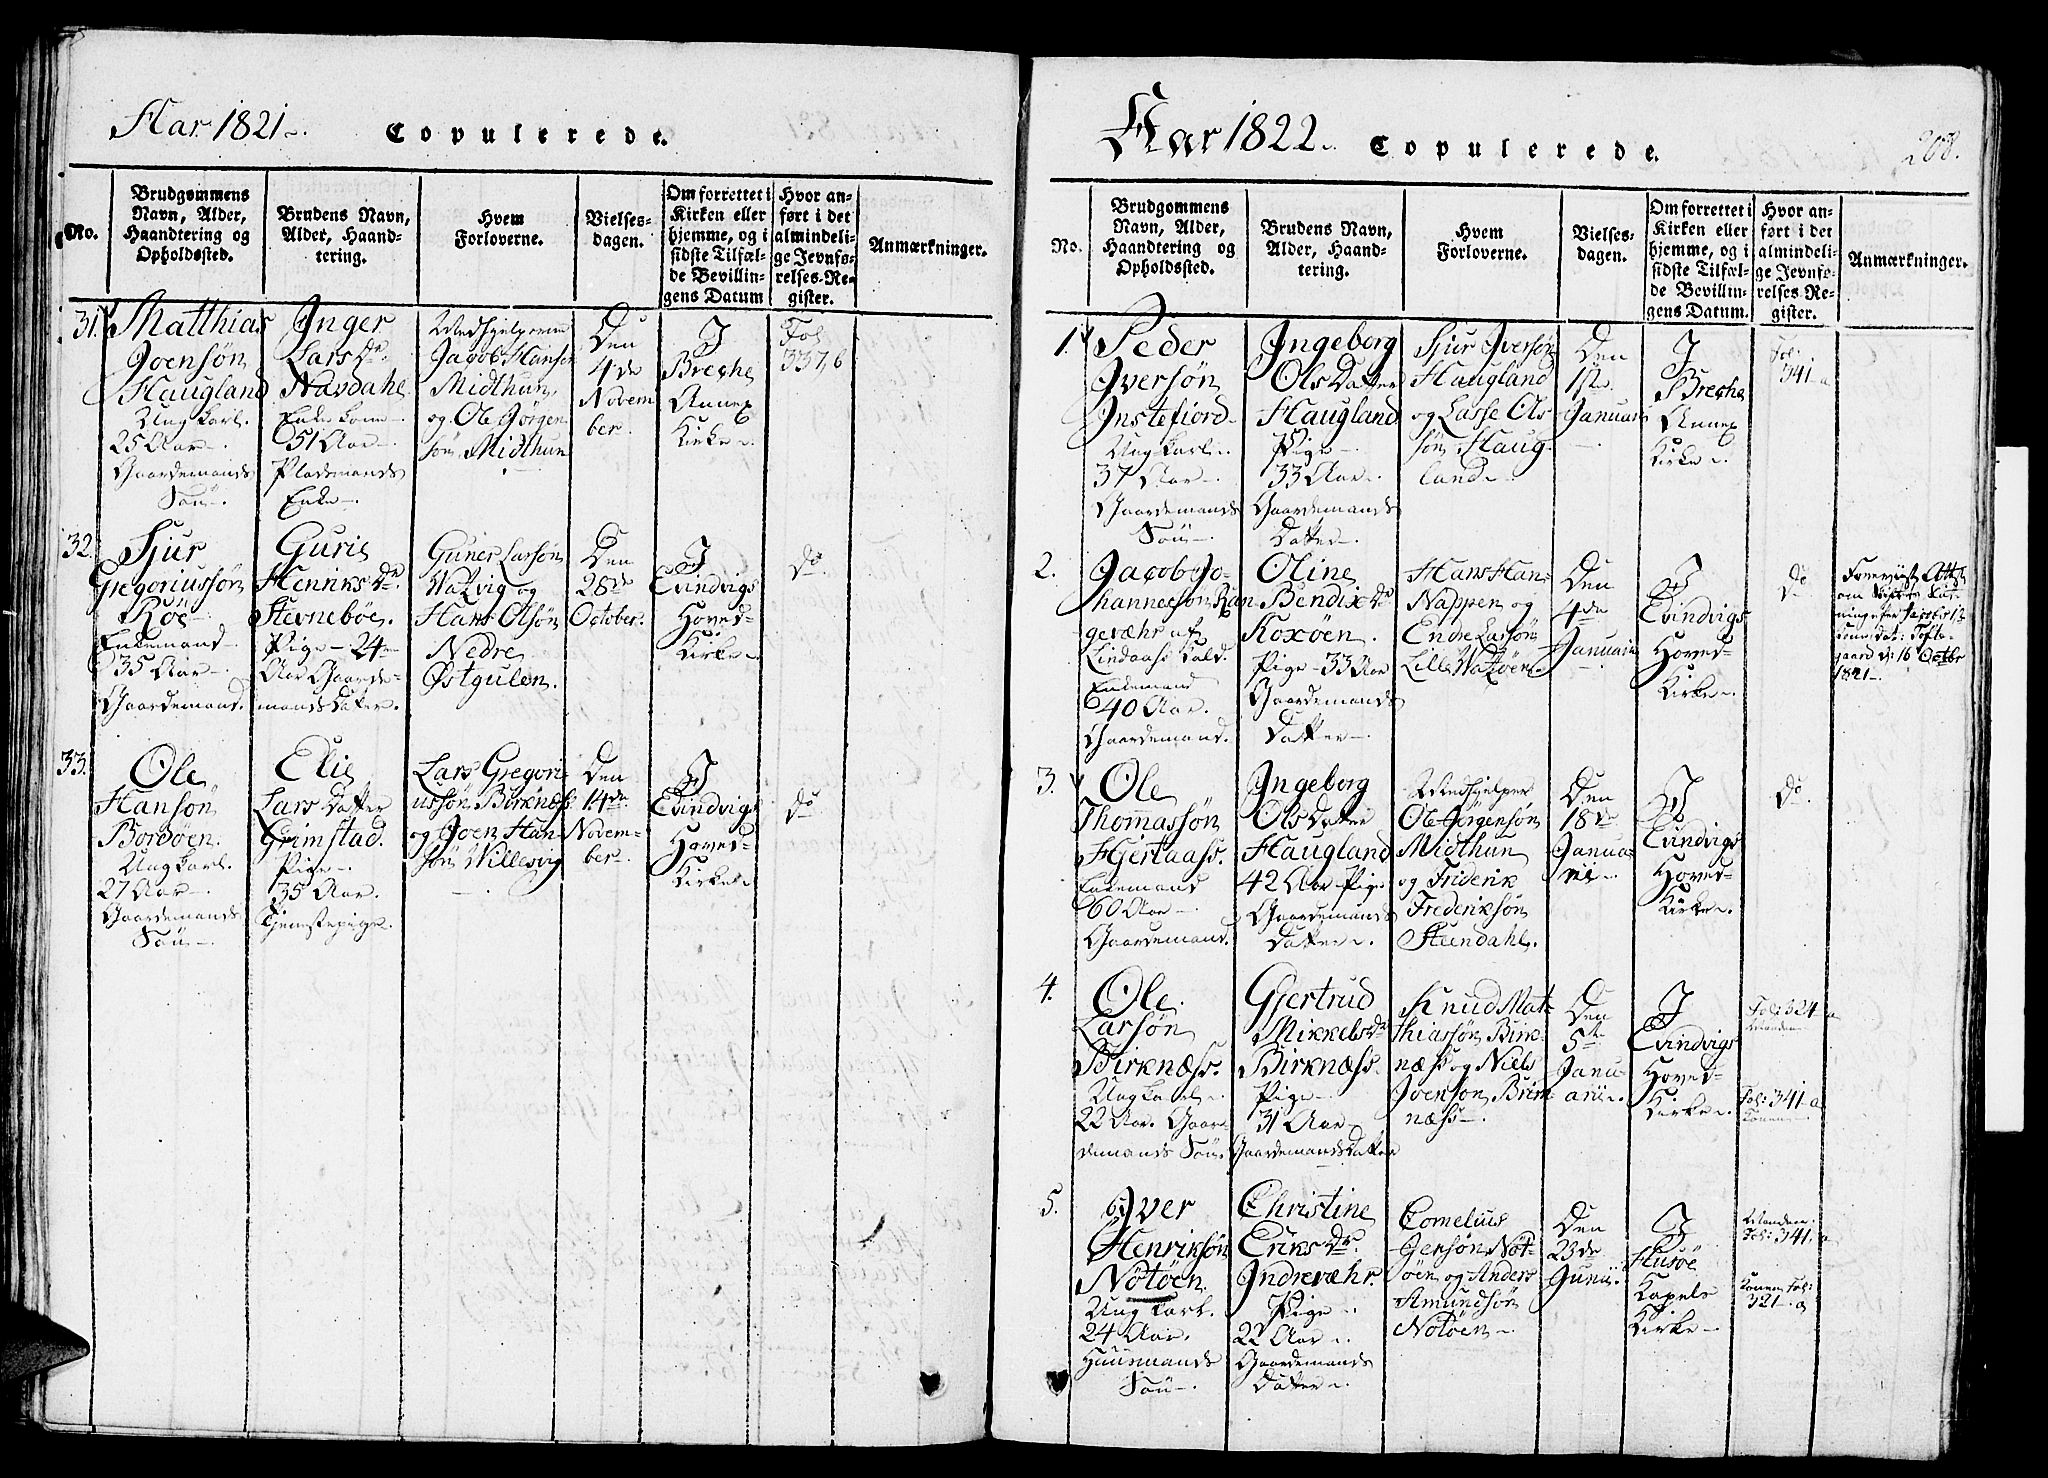 Aar 1821. Copulerede.
No.
Brudgommens
Navn, Alder,
Haandtering og
Opholdssted.
Brudens Navn,
Alder, Haand-
tering.
Hvem
Forloverne.
Vielses-
dagen.
Om forrettet i
Kirken eller
hjemme, og i
sidste Tilfæl-
de Bevillin-
gens Datum
Hvor an-
ført i det
almindeli-
ge Jevnfø-
relses-Re-
gister.
Anmærkninger.
31.
Matthias
Joensøn
Haugland
Ungkarl.
25 Aar
Gaardemands
Søn.
Inger
Lars Dr.
Navdahl
Enkekone
51 Aar
Pladsmands
Enke.
Medhjelperne
Jacob Hansen
Midthun,
og Ole Jørgen
søn Midthun
Den
4de
Novem
ber.
I
Breche
Annex
Kirke.
Fol:
337,6
32.
Sjur
Gregoriussøn
Røe
Enkemand
35 Aar
Gaardemand.
Guri
Henriks Dr.
Stevnebøe.
Pige 24
Aar Gaarde-
mands Datter.
Guner Larsøn
Watzvig og
Hans Olsøn
Nedre
Østgulen.
Den
28de
October.
I
Evindvigs
Hoved-
Kirke.
do
33.
Ole
Hansøn
Bordøen.
Ungkarl.
27 Aar
Gaardemands
Søn.
Elie
Lars Datter
Grimstad.
Pige
35 Aar.
Tjenstepige.
Lars Gregori-
ussøn Birknæss
og Joen Han
søn Willesvig
Den
14de
Novem-
ber.
I
Evindvigs
Hoved-
Kirke.
do
Aar 1822. Copulerede.
208.
No.
Brudgommens
Navn, Alder,
Haandtering og
Opholdssted.
Brudens Navn,
Alder, Haand-
tering.
Hvem
Forloverne.
Vielses-
dagen.
Om forrettet i
Kirken eller
hjemme, og i
sidste Tilfæl-
de Bevillin-
gens Datum.
Hvor an-
ført i det
almindeli-
ge Jevnfø-
relses-Re-
gister.
Anmærkninger.
1.
Peder
Iversøn
Instefiord
Ungkarl.
37 Aar
Gaardemands
Søn.
Ingeborg
Ols Datter
Haugland
Pige
33 Aar.
Gaardemands
Datter.
Sjur Iversøn
Haugland
og Lasse Ols
søn Haug
land.
Den
1ste
Januari
I
Breche
Annex
Kirke.
Fol:
341 a
2.
Jacob Jo-
hannessøn Ran
geværhr af
Lindaas Kald.
Enkemand
40 Aar.
Gaardemand.
Oline
Bendix Dr
Koxøen.
Pige 33 Aar
Gaardemands
Datter.
Hans Han-
Nappen og
Ende Larsøn
Lille Watzøen
Den
4de
Januari
I
Evindvigs
Hoved-
Kirke.
do
Foreviist Attest
om Skifte
efter
Kone, dat: Tofte-
gaard d: 16 Octbr
1821.
3.
Ole
Thomassøn
Hjertaass.
Enkemand
60 Aar
Gaardemand.
Ingeborg
Ols Datter
Haugland
42 Aar Pige
Gaardemands
Datter.
Medhjelper
Ole Jørgensøn
Midthun
og Friderik
Frederiksøn
Steendahl.
Den
18de
Janua-
rii
I
Evindvigs
Hoved-
Kirke.
do.
4.
Ole
Larsøn
Birknæss.
Ungkarl.
22 Aar. Gaar-
demands Søn.
Gjertrud
Mikkels Dr
Birknæss.
Pige
31 Aar
Gaardemands Datter
Knud Mat-
thiassøn Birk-
næss og Niels
Joensøn Brim-
næss.
Den
5te
Janu-
arii.
I
Evindvigs
Hoved-
Kirke.
Fol: 324 a
Manden
Fol: 341 a
Konen
5.
Iver
Henriksøn
Nøtøen
Ungkarl.
24 Aar.
Huusmands
Søn.
Christine
Eriks Dr.
Indrevæhr.
Pige
22 Aar.
Gaardemands
Datter.
Cornelius
Jensøn Nøt-
øen og Anders
Amundsøn
Nøtøen
Den
23de
Junii.
I
Husøe
Kapels
Kirke
Manden
Fol: 341 a
Konen Fol:
321 a